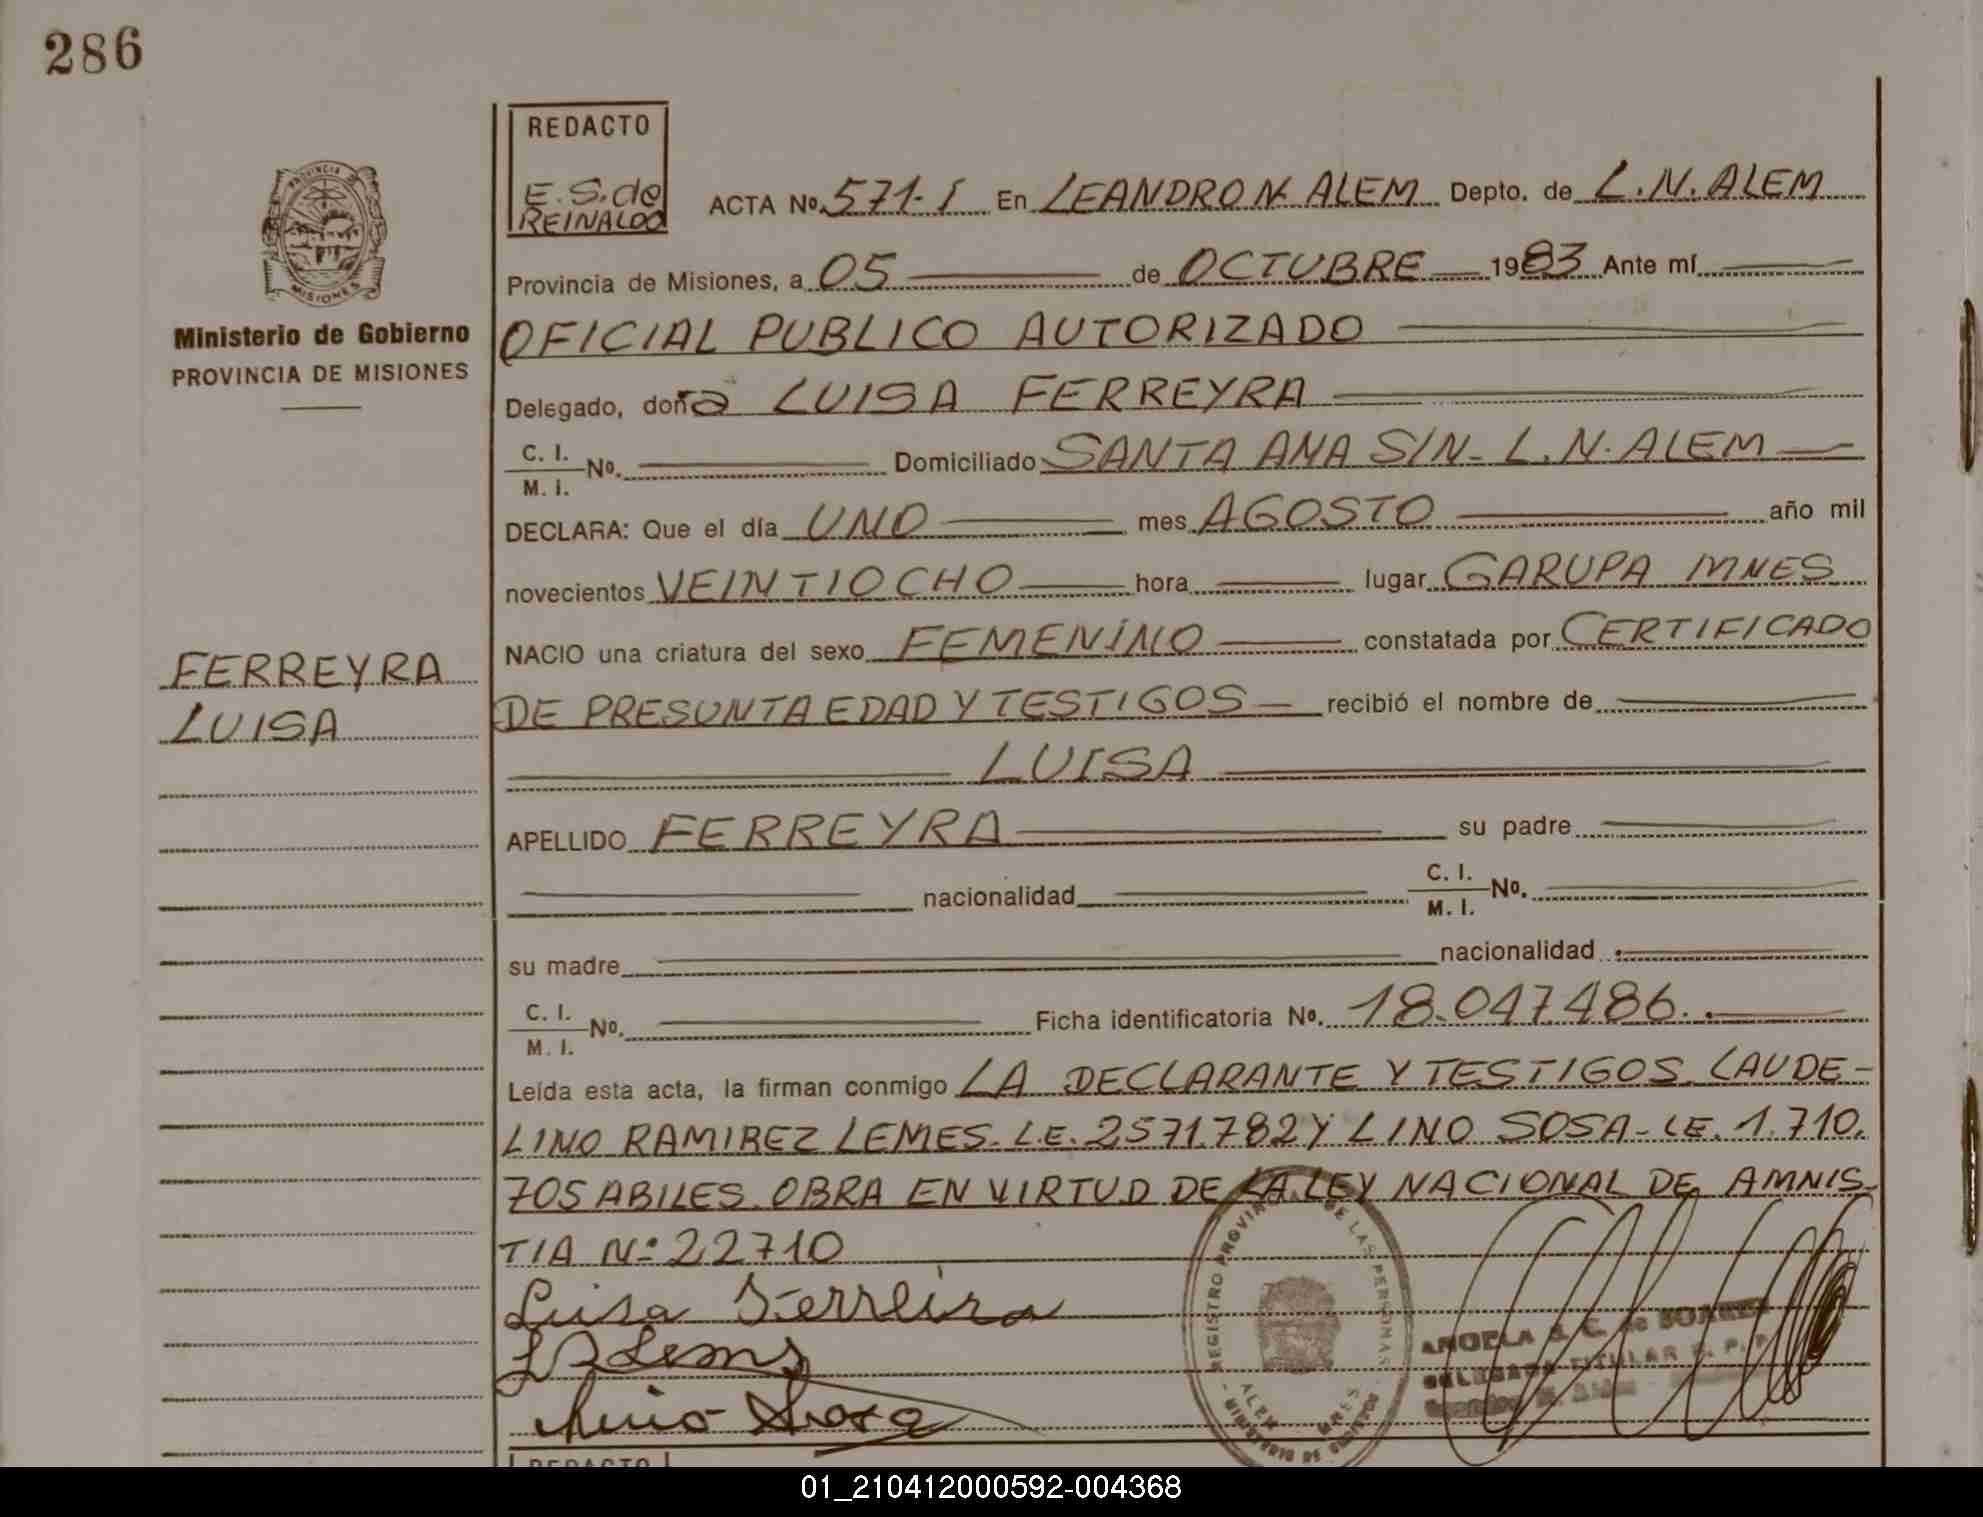 286
REDACTO
E. S. de
REINALDO
PROVINCIA DE
MISIONES
Ministerio de Gobierno
PROVINCIA DE MISIONES
ACTA No. 571-I En LEANDRO N. ALEM Depto. de L.N. ALEM
Provincia de Misiones, a 05 de OCTUBRE 1983 Ante mí
OFICIAL PUBLICO AUTORIZADO
Delegado, doña LUISA FERREYRA
C. I.
M. I. No. Domiciliado SANTA ANA S/N- L.N. ALEM
DECLARA: Que el día UNO mes AGOSTO año mil
novecientos VEINTIOCHO hora lugar GARUPA MNES
NACIO una criatura del sexo FEMENINO constatada por CERTIFICADO
DE PRESUNTA EDAD Y TESTIGOS recibió el nombre de
LUISA
FERREYRA
LUISA
APELLIDO FERREYRA su padre
nacionalidad C. I.
M. I. No.
su madre nacionalidad
C. I.
M. I. No. Ficha identificatoria No. 18.047.486.
Leída esta acta, la firman conmigo LA DECLARANTE Y TESTIGOS. LAUDE-
LINO RAMIREZ LEMES. L.E. 2571.782 Y LINO SOSA- LE. 1.710.
705 ABILES. OBRA EN VIRTUD DE LA LEY NACIONAL DE AMNIS-
TIA Nº 22710
Luisa Ferreira
L R Lems
Lino Sosa
REGISTRO PROVINCIAL DE LAS PERSONAS
ALEM MNES
MINISTERIO DE GOBIERNO
ANGELA S. C. de SOAREZ
DELEGADA TITULAR R. P. P.
REDACTO
01_210412000592-004368